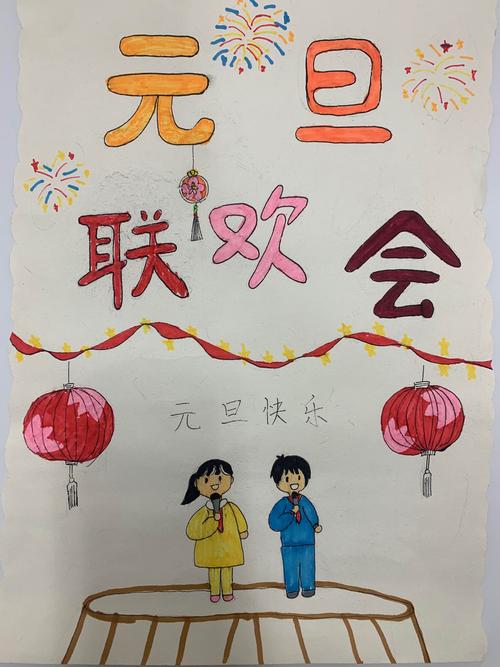 元旦
联欢会
元旦快乐